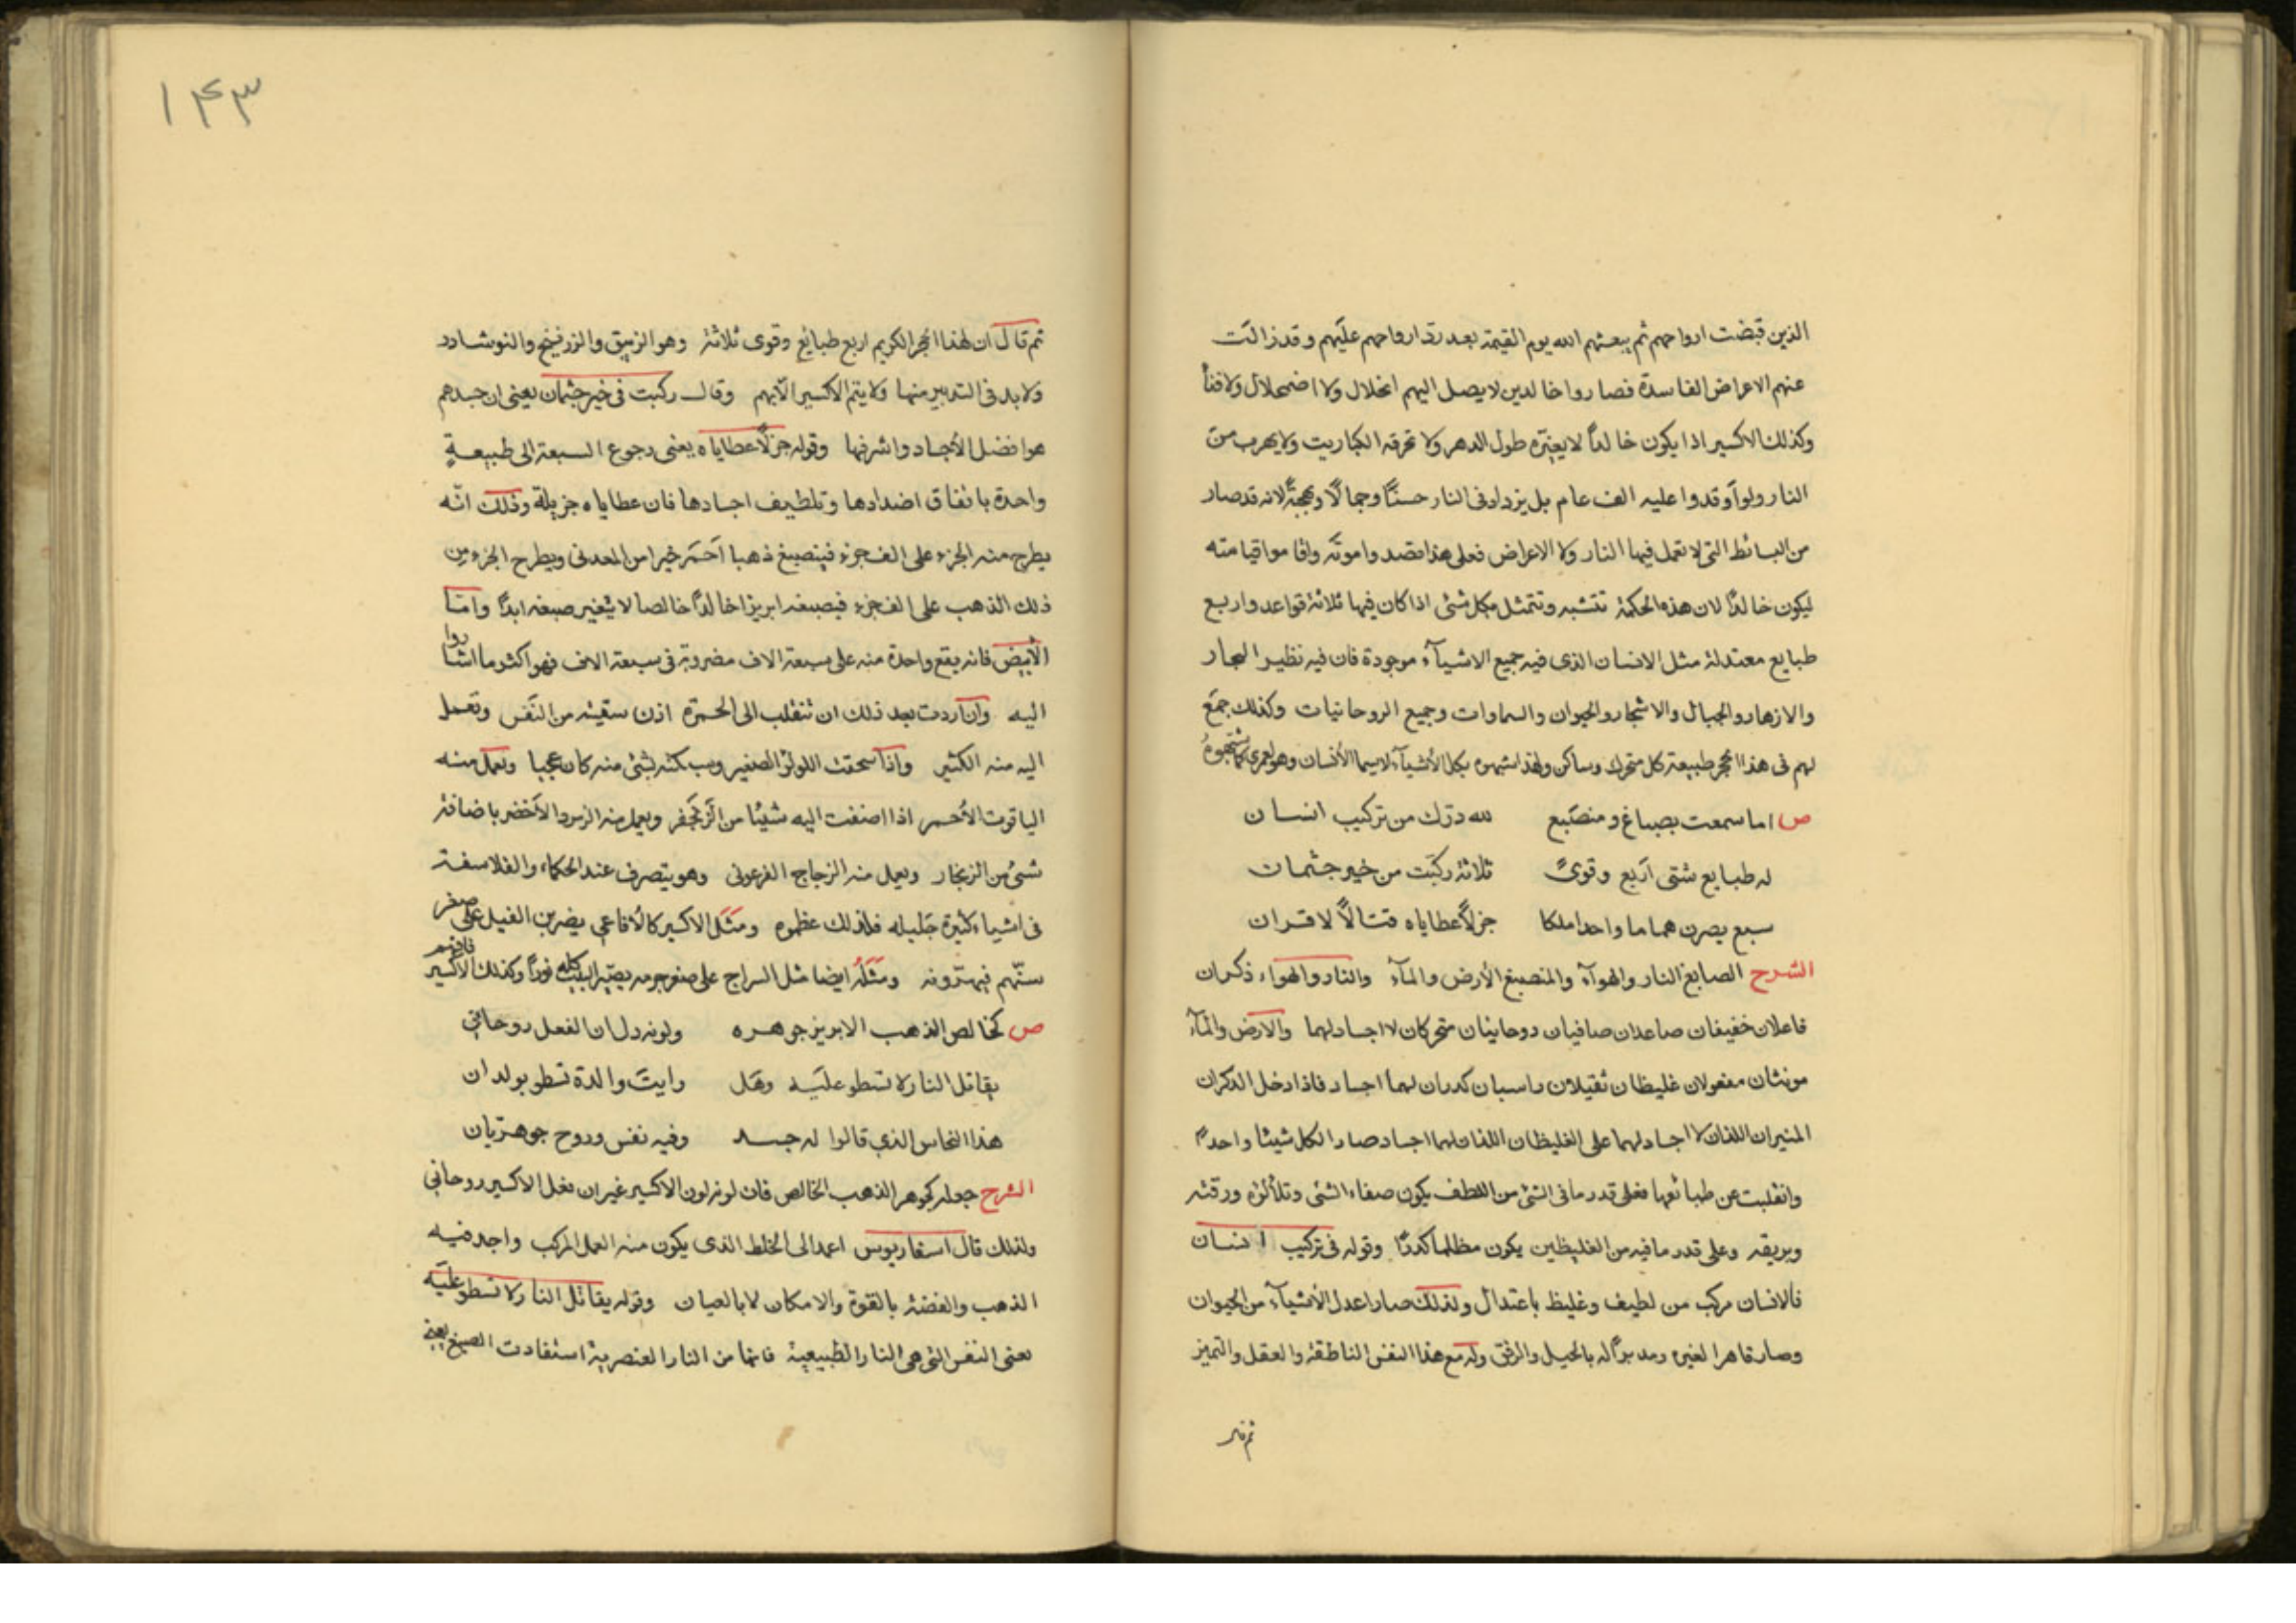 الذين قبضت ارواحهم ثم يبعثهم الله يوم القيمة بعد ردّ ارواحهم عليهم وقد زالت
عنهم الاعراض الفاسدة فصاروا خالدين لا يصل اليهم انحلال ولا اضمحلال ولا فنأ
وكذلك الاكسير اذا يكون خالداً لا يغيّره طول الدهر ولا تحرقه الكباريت ولا يهرب من
النار ولو أوقدوا عليه الف عام بل يزداد فى النار حسنًا وجمالًا وبهجةً لانه قد صار
من البسائط التى لا تعمل فيها النار ولا الاعراض فعلى هذا قصدوا موته واقاموا قيامته
ليكون خالدًا لان هذه الحكمة تتشبه وتتمثل بكل شئى اذا كان فيها ثلاثة قواعد واربع
طبايع معتدلة مثل الانسان الذى فيه جميع الاشيآء موجودة فان فيه نظير البحار
والازهار والجبال والاشجار والحيوان والسماوات وجميع الروحانيات وكذلك جمع
لهم فى هذا الحجر طبيعة كل متحرك وساكن ولهذا شبهوه بكل الأشيآء لاسيما الأنسان وهو لعمرى كما شبهوهُ
ص اما سمعت بصباغ ومنصبع لله درّك من تركيب انسان
له طبايع شتى أربع وقوىً ثلاثة ركّبت من خير جثمان
سبع يصرن هماما واحدا ملكا جزلاً عطاياه قتالاً لاقران
الشرح الصابغ النار والهوآء والمنصبغ الأرض والمآء والنار والهواء ذكران
فاعلان خفيفان صاعدان صافيان روحانيان متحركان لا اجساد لهما والأرض والمآء
مونثان مفعولان غليظان ثقيلان راسبان كدران لهما اجساد فاذا دخل الذكران
المنيران اللذان لا اجساد لهما على الغليظان اللذان لهما اجساد صار الكل شيئا واحدًا
وانقلبت عن طبائعها فعلى قدر ما فى الشئى من اللطف يكون صفاء الشئى وتلألؤه ورقته
وبريقه وعلى قدر ما فيه من الغليظين يكون مظلما كدرًا وقوله فى تركيب انسان
فالانسان مركب من لطيف وغليظ باعتدال ولذلك صار اعدل الأشيآء من الحيوان
وصار قاهرا لغيره ومدبراً له بالحيل والرفق وله مع هذا النفس الناطقة والعقل والتميز
ثم قال
١۴٣
ثم قال ان لهذا الحجر الكريم اربع طبايع وقوى ثلاثة وهو الزيبق والزرنيخ والنوشادر
ولا بد فى التدبير منها ولا يتم الاكسير الّا بهم وقال ركبت فى خير جثمان يعنى ان جسدهم
هو افضل الأجساد واشرفها وقوله جزلاً عطاياه يعنى رجوع السبعة الى طبيعةٍ
واحدة باتفاق اضدادها وتلطيف اجسادها فان عطاياه جزيلة وذلك انّه
يطرح منه الجزء على الف جزء فينصبغ ذهبا احمر خيرا من المعدنى ويطرح الجزء من
ذلك الذهب على الف جزء فيصبغه ابريزا خالدًا خالصا لا يتغير صبغه ابدًا وامّا
الأبيض فانه يقع واحدة منه على سبعة الاف مضروبة فى سبعة الاف فهو اكثر ما اشاروا
اليه وان اردت بعد ذلك ان تنقلب الى الحمرة اذن سقيته من النّفس وتعمل
اليه منه الكثير واذا سحقت اللولؤ الصغير وسبكته بشئى منه كان عجبا ويعمل منه
الياقوت الأحمر اذا اضفت اليه شيئًا من الزنجفر ويعمل منه الزمرد الأخضر باضافة
شىُ من الزنجار ويعمل منه الزجاج الفرعونى وهو يتصرف عند الحكماء والفلاسفة
فى اشياء كثيرة جليله فلذلك عظموه ومثل الاكسير كالأفاعى يضربن الفيل على صغر
سنّهم فيهترونه ومثله ايضا مثل السراج على صغر جرمه يصيّر البيت كله نوراً وكذلك الأكسير فافهم
ص كخالص الذهب الابريز جوهره ولونه دل ان الفعل روحانى
يقاتل النار لا تسطو عليه وهل رايت والدة تسطو بولدان
هذا النحاس الذي قالوا له جسد وفيه نفس وروح جوهريان
الشرح جعله كجوهر الذهب الخالص فان لونه لون الاكسير غير ان فعل الاكسير روحانى
ولذلك قال اسفاريوس اعمد الى الخلط الذى يكون منه العمل المركب واجد فيه
الذهب والفضة بالقوة والامكان لا بالعيان وقوله يقاتل النار لا تسطو عليه
يعنى النفس التى هى النار الطبيعية فانها من النار العنصرية استفادت الصبغ يعنى